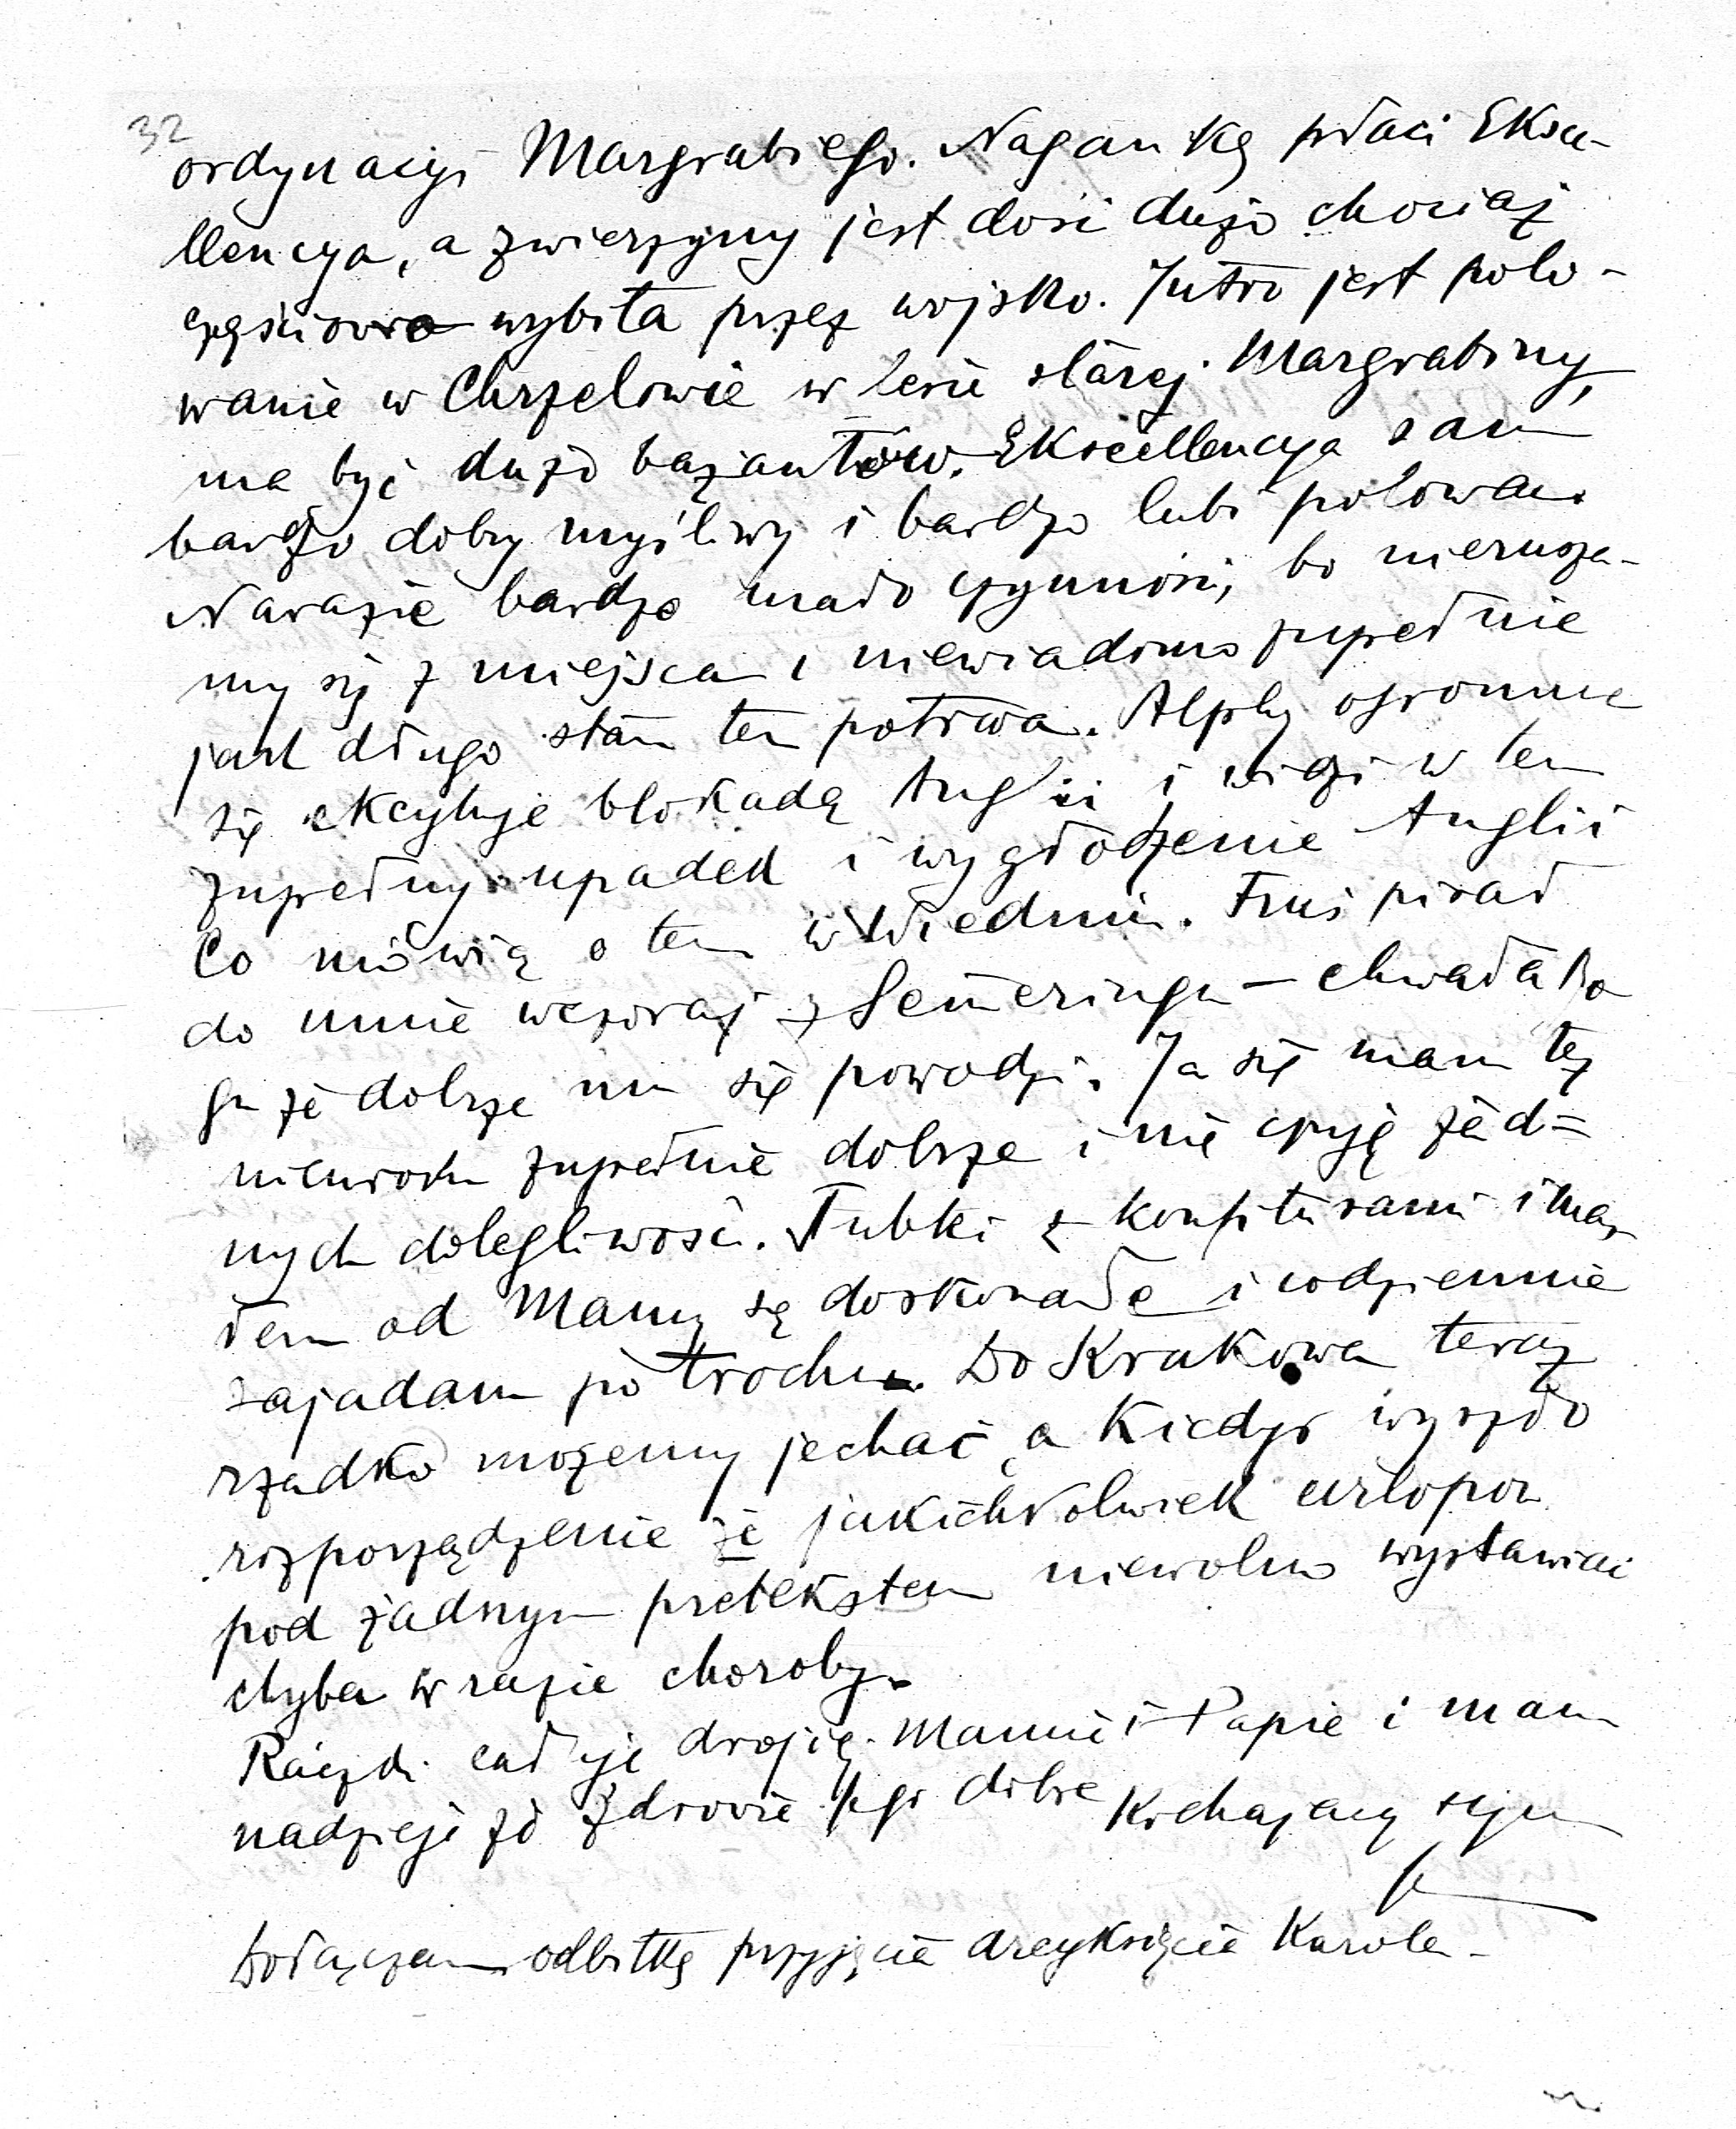 32
ordynacyi Margrabiego. Nagankę płaci Eksce-
llencya, a zwierzyny jest dość dużo chociaż
częściowo wybita przez wojsko. Jutro jest polo-
wanie w Chrzelowie w lesie starej Margrabiny,
ma być dużo bażantów. Ekscellencya sam
bardzo dobry myśliwy i bardzo lubi polować.
Narazie bardzo mało czynności, bo nierusza-
my się z miejsca i niewiadomo zupełnie
jak długo stan ten potrwa. Alphy ogromnie
się ekcytuje blokadą Anglii i widzi w tem
zupełny upadek i wygłodzenie Anglii
Co mówią o tem w Wiedniu. Fruś pisał
do mnie wczoraj z Semeringu – chwała Bo
gu że dobrze mu się powodzi. Ja się mam też
zupełnie dobrze i nie czuję żad=
nych dolegliwości. Tubki z konfiturami i
od Mamy są doskonałe i codziennie
zajadam po trochu. Do Krakowa teraz
rzadko możemy jechać, a kiedyś wyszło
rozporządzenie że jakichkolwiek urlopów
pod żadnym pretekstem niewolno wystawiać
chyba w razie choroby.
Rączki całuję drogiej Mamie i Papie i mam
nadzieję że zdrowie Jego dobre Kochający syn
Dołączam odbitkę przyjęcia arcyksięcia Karola –